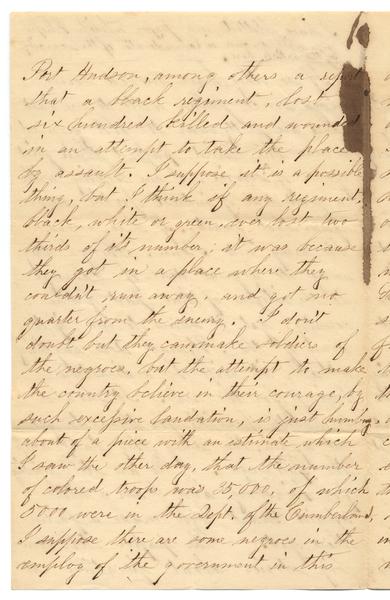 Port Hudson, among others a report
that a black regiment, lost
six hundred killed and wounded
in an attempt to take the place
by assault. I suppose it is a possible
thing, but I think if any regiment,
black, white or green, ever lost two
thirds of its number, it was because
they got in a place where they
couldn't run away, and got no
quarter from the enemy. I don't
doubt but they can make soldiers of
the negroes, but the attempt to make
the country believe in their courage, by
such excessive laudation, is just humbug
about of a piece with an estimate which
I saw the other day, that the number
of colored troops was 35,000, of which
5000 were in the Dept. of the Cumberland,
I suppose there are some negroes in the
employ of the government in this